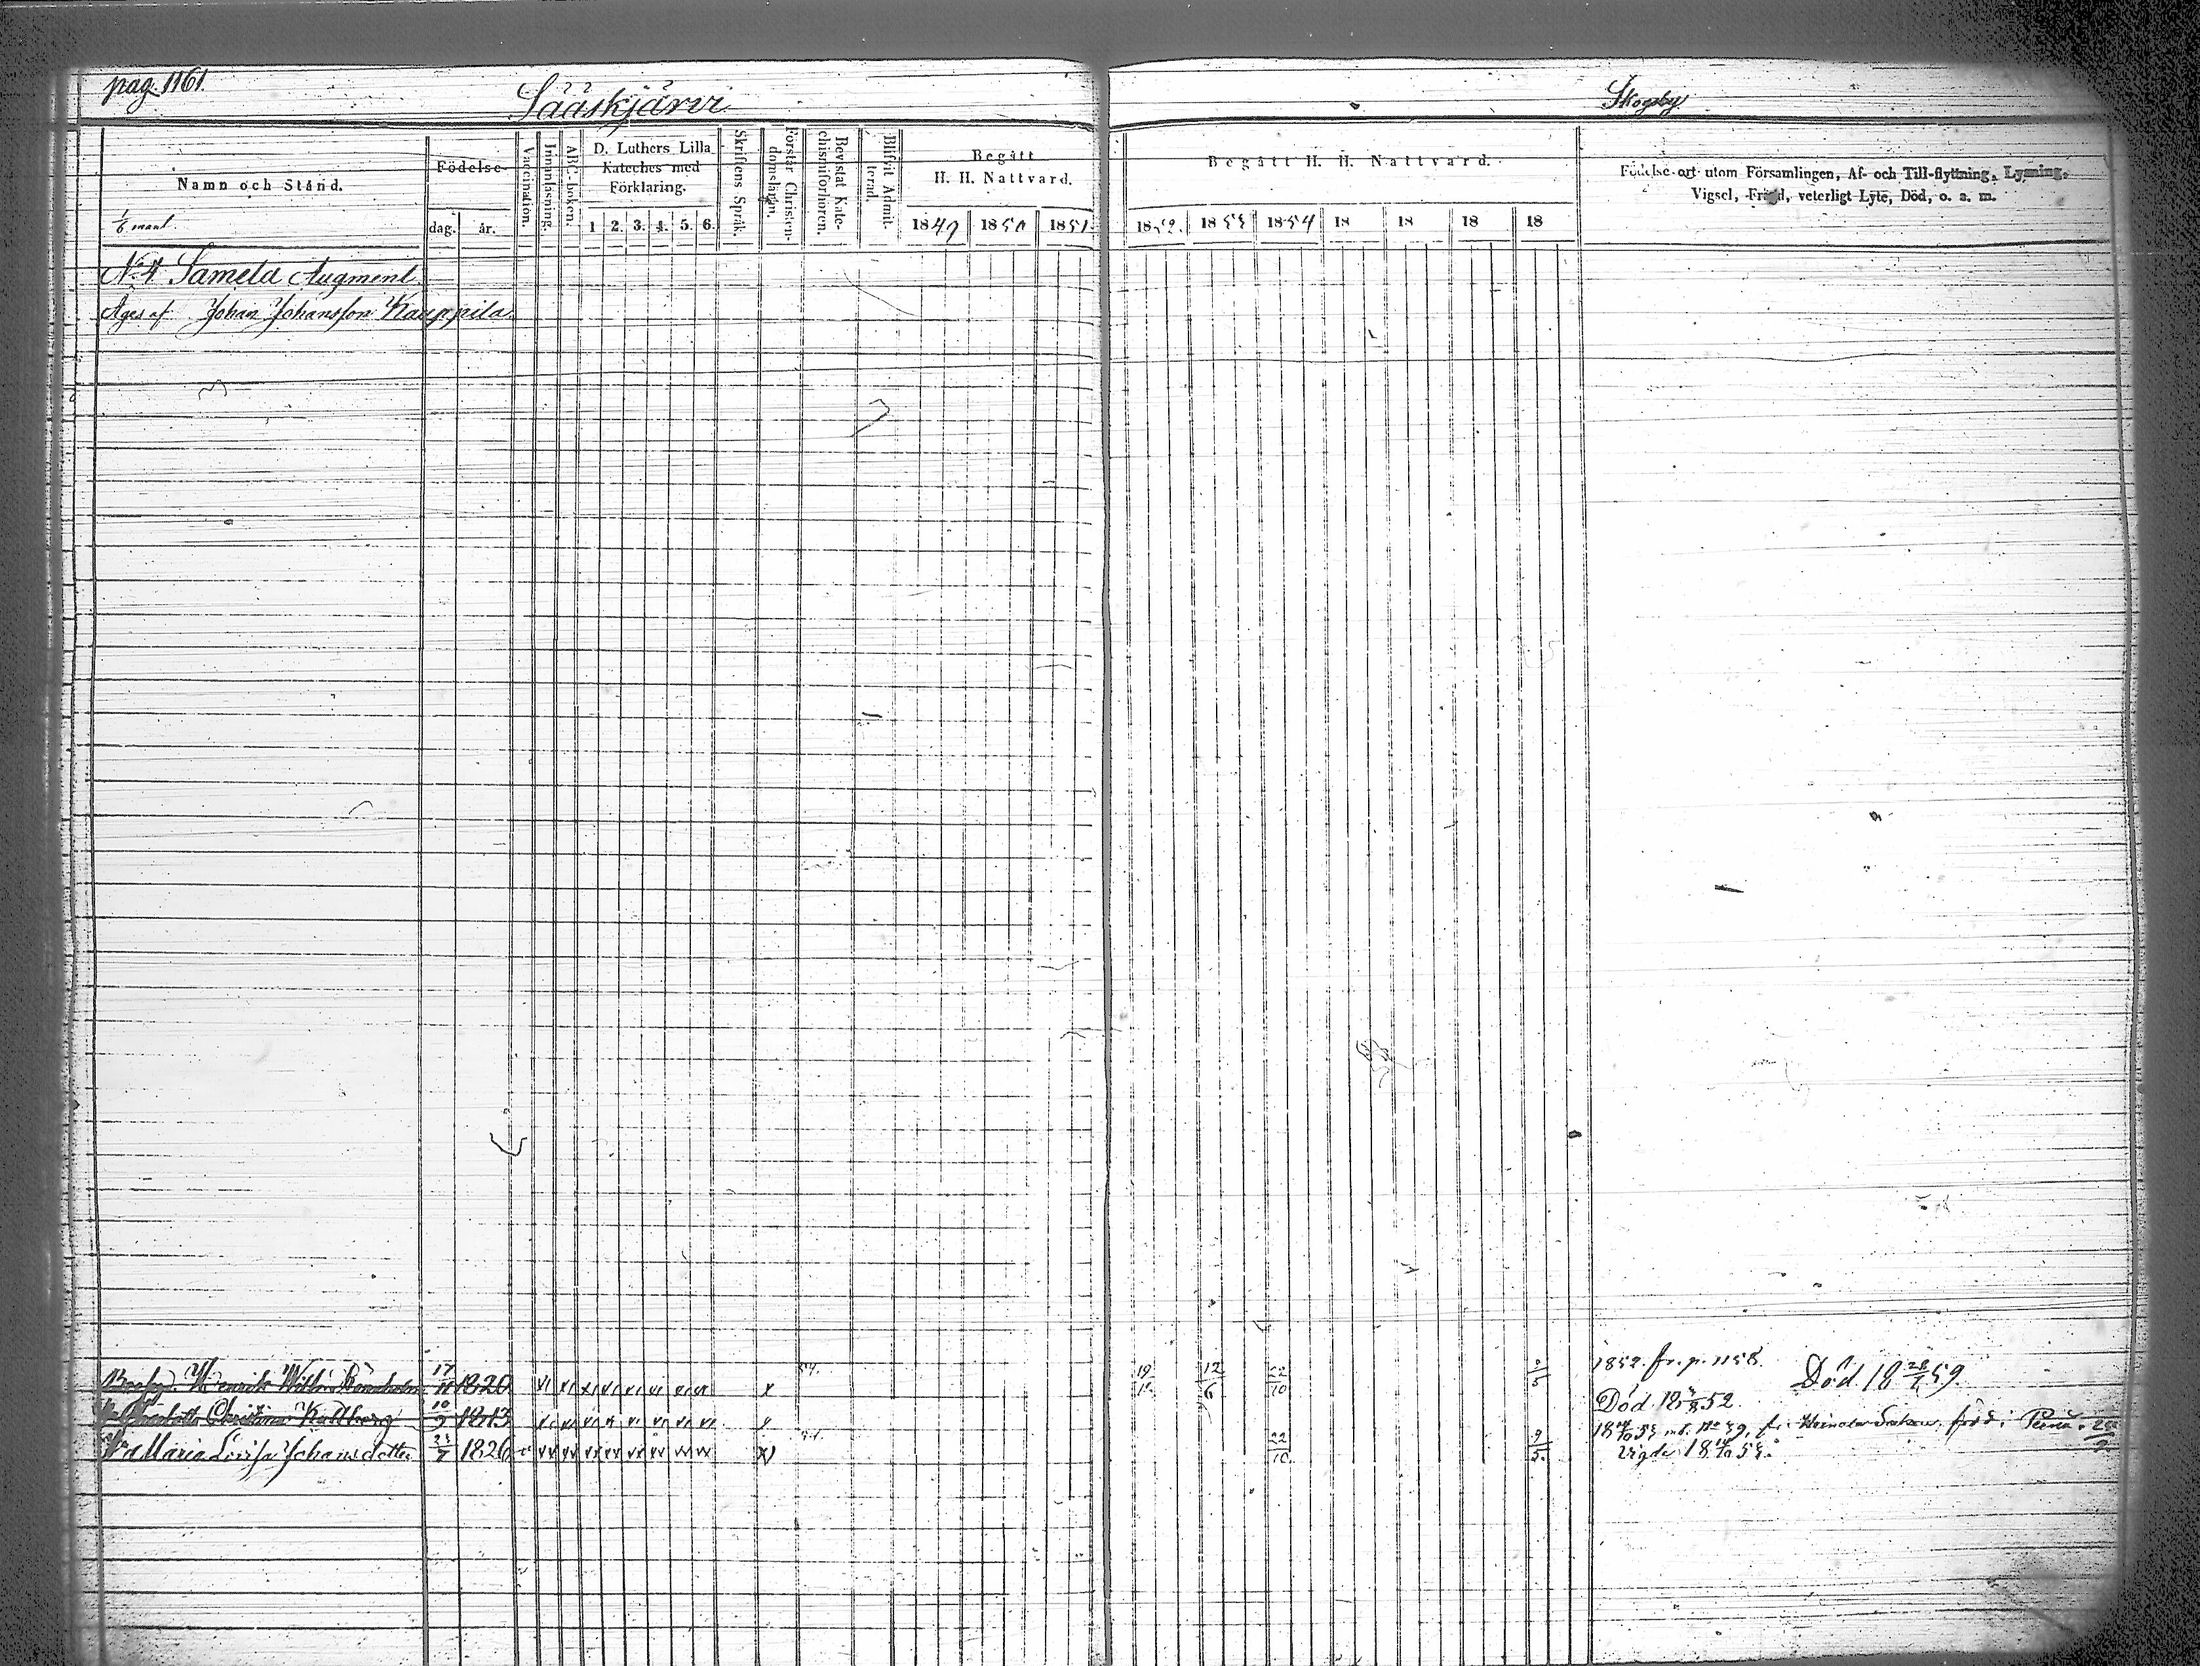 pag. 1161.
Sääskjärvi
Skogsby
Namn och Stånd.
1/6 mant.
Födelse-
dag. år.
Vaccination.
Innanläsning.
ABC-boken.
D. Luthers Lilla
Kateches med
Förklaring.
1 2. 3. 4. 5. 6.
Skriftens Språk.
Förstår Christen-
domsläran.
Bevistat Kate-
chismiförhören.
Blifvit Admit-
terad.
Begått
H. H. Nattvard.
1849 1850 1851
Begått H. H. Nattvard.
1852. 1853 1854 18 18 18 18
Födelse-ort utom Församlingen, Af- och Till-flyttning, Lysning,
Vigsel, Fräjd, veterligt Lyte, Död, o. a. m.
No 4 Sameld Augment
Äges af Johan Johansson Kauppila.
Henrik Wilh. 17 1820 54. 19 12/6 22/10 1852. fr. p. 1158. Död 18 59.
Charlotta Christina Kullberg 10/9 1813 Död 18 52.
Maria Lovisa Johansdotter 1826 54. 22/10 9/5 född i
Vigde